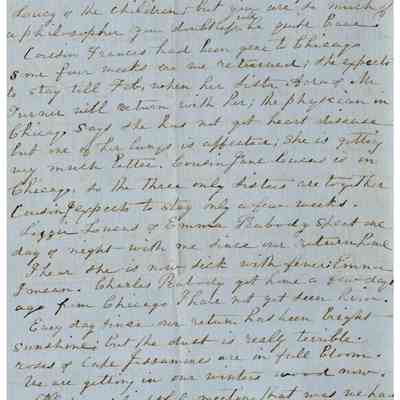 of the children, but you are so much of
a philosopher you doubtless will be quite brave.
Cousin Frances had been gone to Chicago
some four weeks when we returned; she expects
to stay till Feb, when her sister Acra & Mr
Turner will return with her; the physician in
Chicag. says she has not got heart disease
but one of her lungs is affected; she is getting
very much better. Cousin Jane Lucas is in
Chicago, so the three only sisters are together
Cousin J expects to stay only a few weeks.
Lizzie Lucas & Emma Peabody spent one
day & night with me since our return home
I hear she is now sick with fever; Emma
I mean. Charles Peabody got home a few days
ago from Chicago I have not yet seen him.
Every day since our return has been bright
sunshine; but the dust is really terrible.
roses & Cape Jessamines are in full bloom.
We are getting in our winters wood now.
meeting that was we had